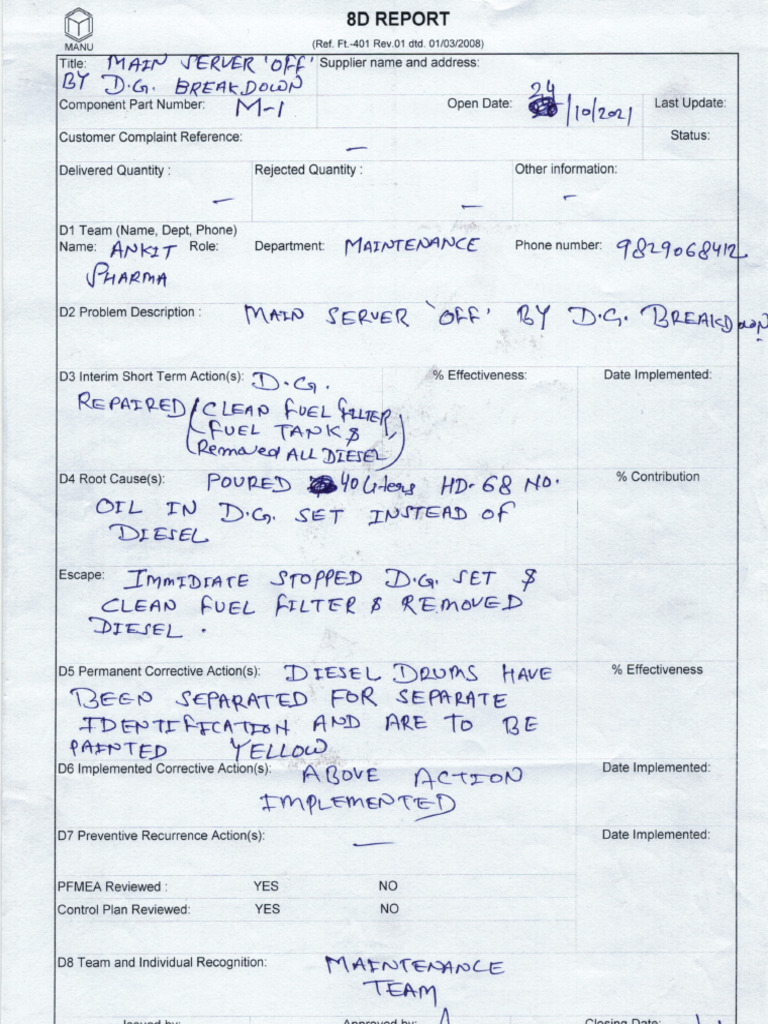 8D REPORT
MANU
(Ref. Ft.-401 Rev.01 dtd. 01/03/2008)
Title: MAIN SERVER 'OFF' Supplier name and address:
BY D.G. BREAKDOWN
Component Part Number: M-1 Open Date: 24/10/2021 Last Update:
Customer Complaint Reference: — Status:
Delivered Quantity : — Rejected Quantity : — Other information: —
D1 Team (Name, Dept, Phone)
Name: ANKIT Role: Department: MAINTENANCE Phone number: 9829068412
SHARMA
D2 Problem Description : MAIN SERVER 'OFF' BY D.G. BREAKDOWN
D3 Interim Short Term Action(s): D.G. % Effectiveness: Date Implemented:
REPAIRED (CLEAN FUEL FILTER,
FUEL TANK &
Removed ALL DIESEL)
D4 Root Cause(s): POURED 40 liters HD-68 NO. % Contribution
OIL IN D.G. SET INSTEAD OF
DIESEL
Escape: IMMIDIATE STOPPED D.G. SET &
CLEAN FUEL FILTER & REMOVED
DIESEL.
D5 Permanent Corrective Action(s): DIESEL DRUMS HAVE % Effectiveness
BEEN SEPARATED FOR SEPARATE
IDENTIFICATION AND ARE TO BE
PAINTED YELLOW
D6 Implemented Corrective Action(s): ABOVE ACTION Date Implemented:
IMPLEMENTED
D7 Preventive Recurrence Action(s): — Date Implemented:
PFMEA Reviewed : YES NO
Control Plan Reviewed: YES NO
D8 Team and Individual Recognition: MAINTENANCE
TEAM
Issued by: Approved by: Closing Date: